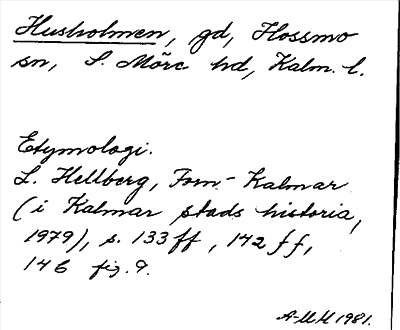 Husholmen, gd, Hossmo
sn, S. Möre hd, Kalm. l.
Etymologi.
L. Hellberg, Forn-Kalmar
(i Kalmar stads historia,
1979), s. 133 ff, 142 ff,
146 fig. 9.
A-MH 1981.